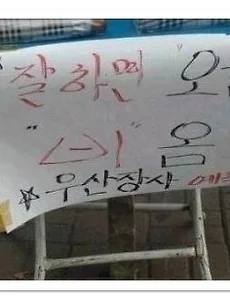 잘하면
"비" 옴
☆우산장사